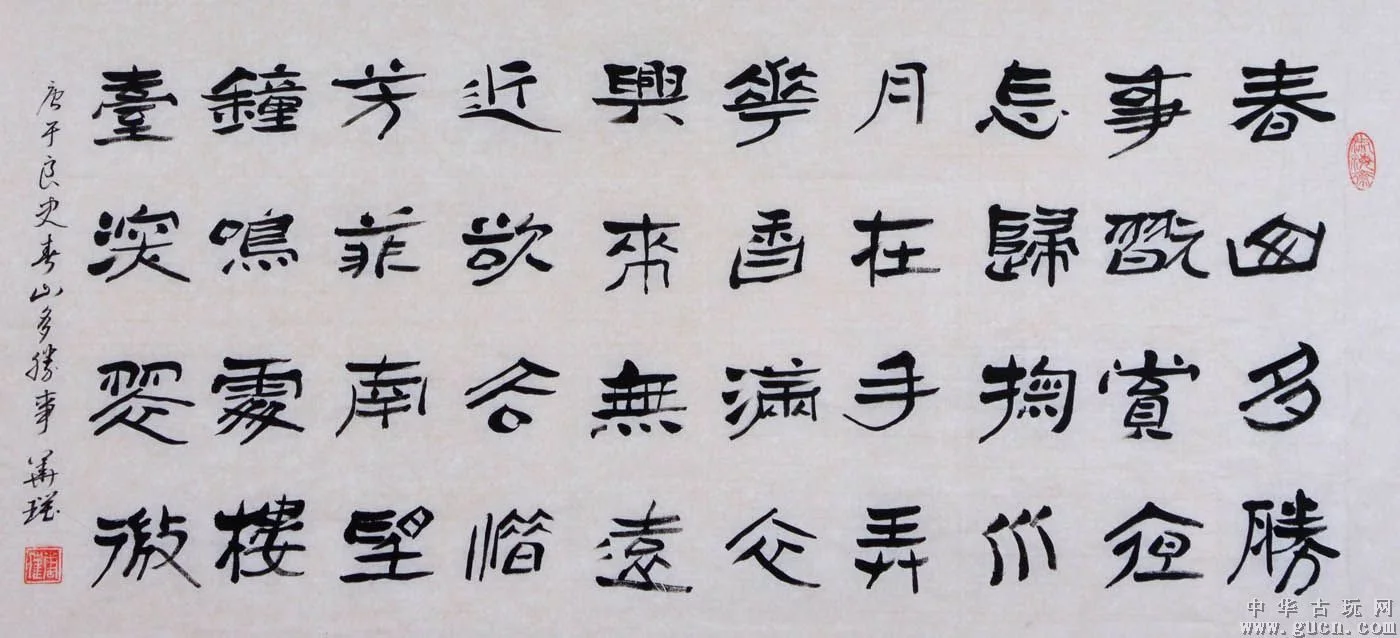 春山多勝
事翫賞夜
忘歸掬水
月在手弄
華香滿衣
興來無遠
近欲去惜
芳菲南望
鐘鳴處樓
臺深翠微
唐于良史春山多勝事
中华古玩网
www.gucn.com